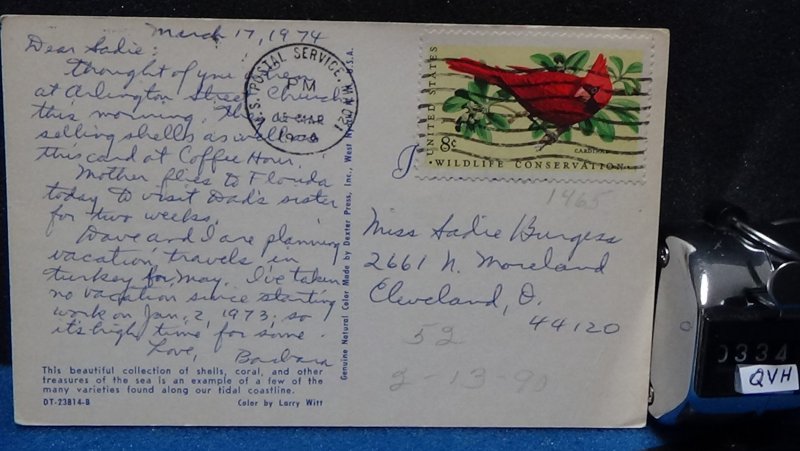 March 17, 1974
Dear Sadie:
Thought of you
at Arlington Street Church
this morning.
selling shells as well as
this card at Coffee Hour.
Mother flies to Florida
today to visit Dad's sister
for two weeks.
Dave and I are planning
vacation travels in
Turkey for May. I've taken
no vacation since starting
work on Jan. 2, 1973, so
it's high time for some.
Love, Barbara
This beautiful collection of shells, coral, and other
treasures of the sea is an example of a few of the
many varieties found along our tidal coastline.
DT-23814-B Color by Larry Witt
Genuine Natural Color Made by Dexter Press, Inc., West U.S.A.
U.S. POSTAL SERVICE, MA 021
PM
MAR
UNITED STATES
8c
CARDINAL
WILDLIFE CONSERVATION
1465
Miss Sadie Burgess
2661 N. Moreland
Cleveland, O.
44120
52
2 13-90
0334
QVH